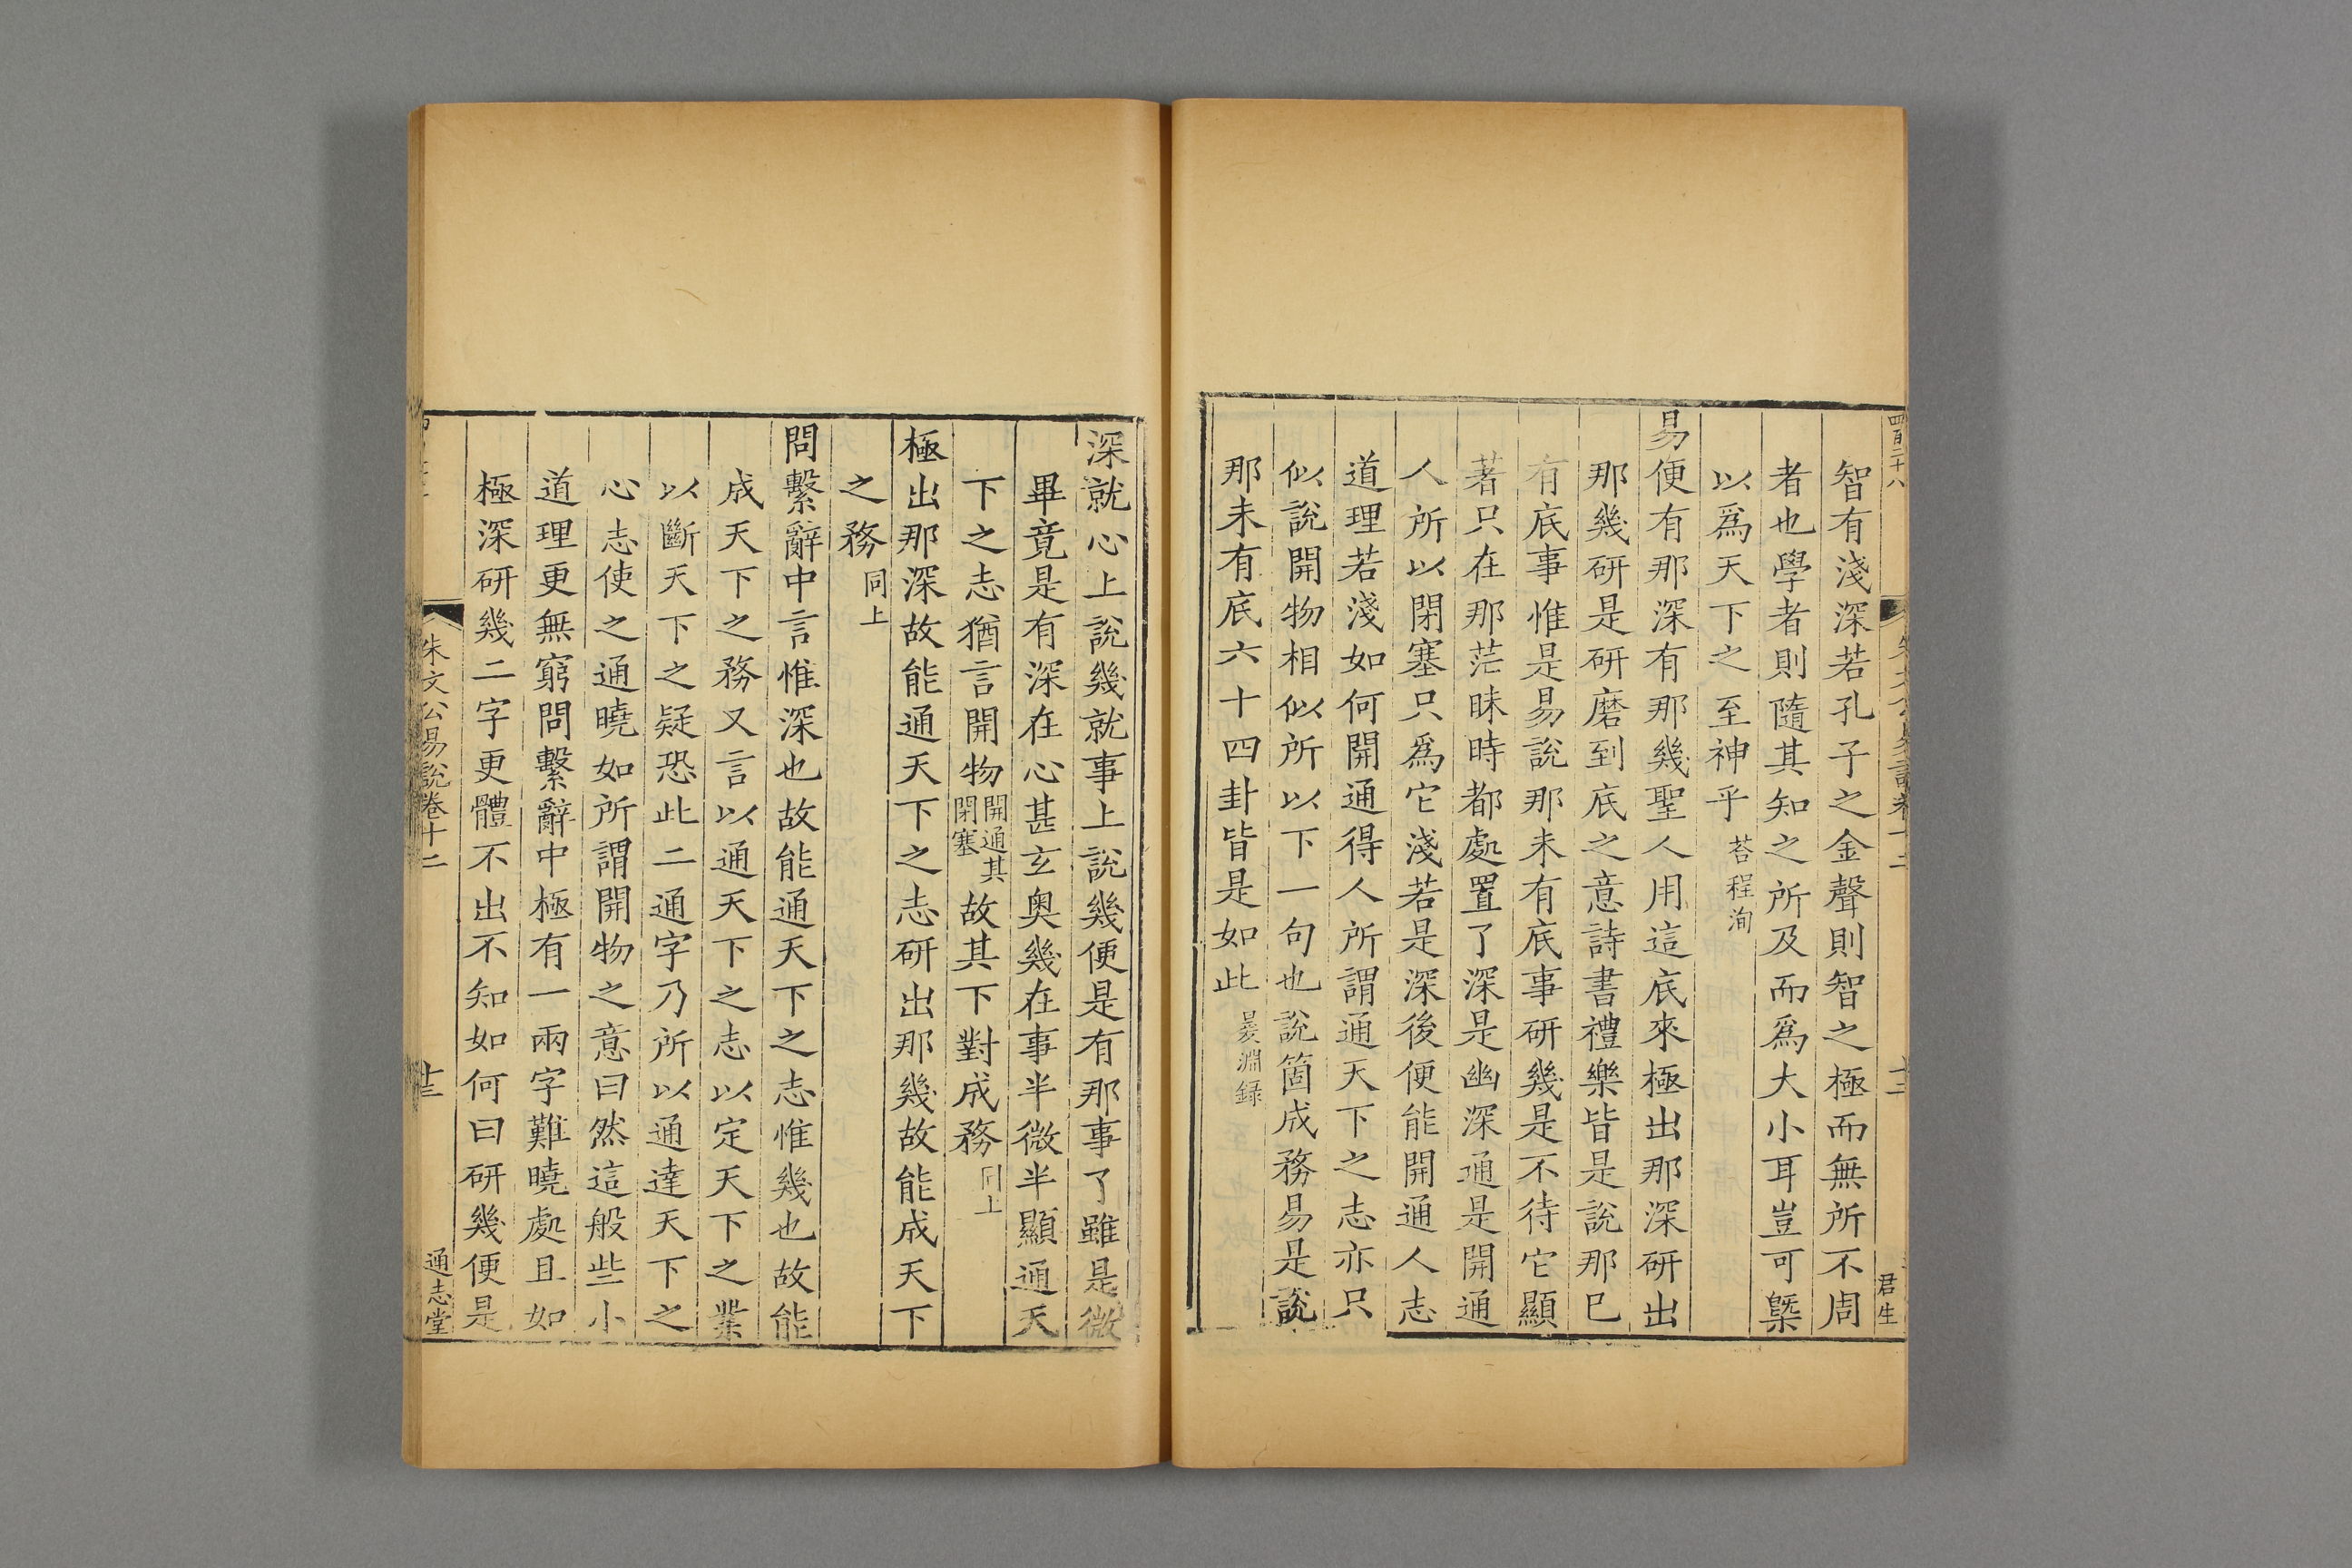 四百二十八
君生
智有淺深若孔子之金聲則智之極而無所不周
者也學者則隨其知之所及而爲大小耳豈可槩
以爲天下之至神乎荅程洵
易便有那深有那幾聖人用這底來極出那深研出
那幾研是研磨到底之意詩書禮樂皆是說那巳
有底事惟是易說那未有底事研幾是不待它顯
著只在那茫昧時都處置了深是幽深通是開通
人所以閉塞只爲它淺若是深後便能開通人志
道理若淺如何開通得人所謂通天下之志亦只
似說開物相似所以下一句也說箇成務易是說
那未有底六十四卦皆是如此㬊淵録
深就心上說幾就事上說幾便是有那事了雖是微
畢竟是有深在心甚玄奧幾在事半微半顯通天
下之志猶言開物開通其閉塞故其下對成務同上
極出那深故能通天下之志研出那幾故能成天下
之務同上
問繫辭中言惟深也故能通天下之志惟幾也故能
成天下之務又言以通天下之志以定天下之業
以斷天下之疑恐此二通字乃所以通達天下之
心志使之通曉如所謂開物之意曰然這般些小
道理更無窮問繫辭中極有一兩字難曉處且如
極深研幾二字更體不出不知如何曰研幾便是
朱文公易說卷十二
十三
通志堂